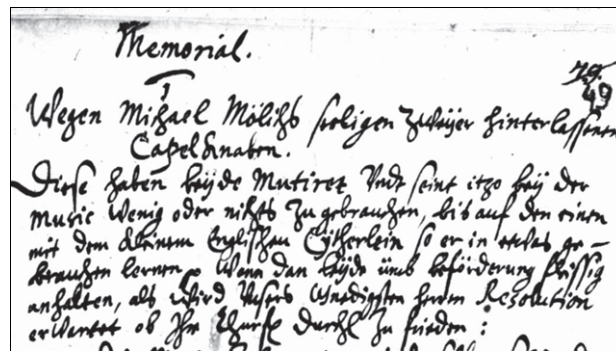 Memorial.
79.
49
Wegen Michael Mölichs seeligen Zweyer hinterlassenen
Capelknaben.
Diese haben beyde Mutiret Undt seint itzo bey der
Music Wenig oder nichts Zu gebrauchen, bis auf den einen
mit dem kleinem Englischen Cytherlein so er in etwas ge-
brauchen lernen, Wann dan beyde umb beförderung fleissig
anhalten, als Wird Unsers Gnedigsten herrn Resolution
erwartet ob Ihr Churf Durchl Zu frieden: